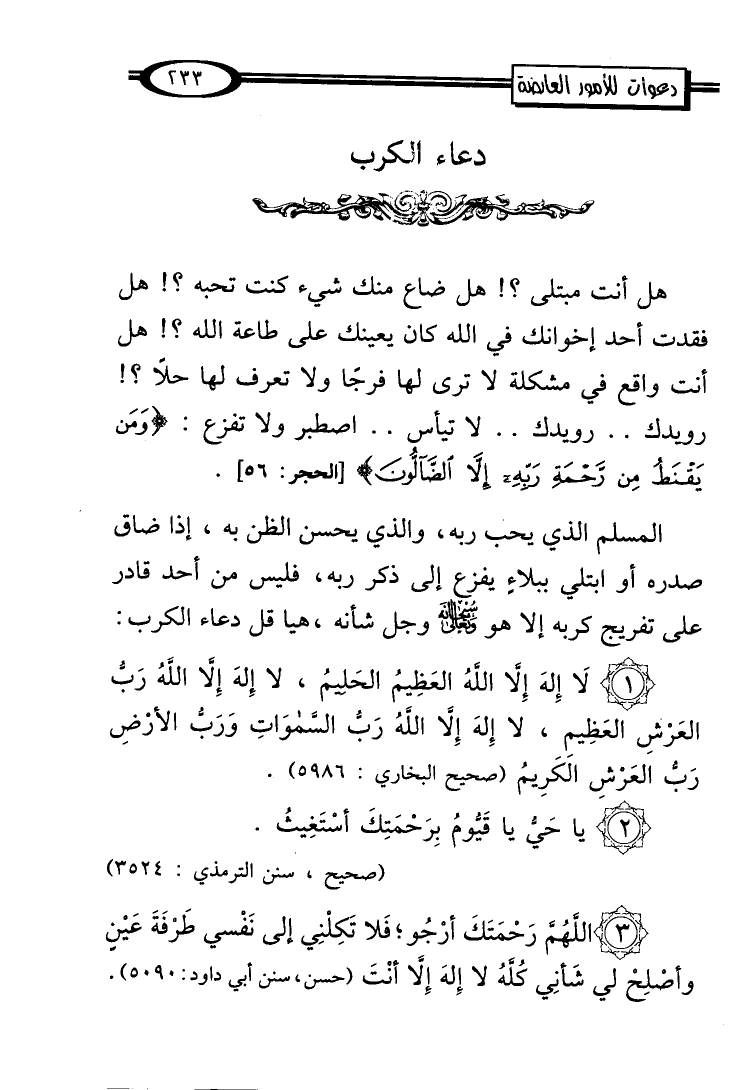 دعوات للأمور العارضة
٢٣٣
دعاء الكرب
هل أنت مبتلى ؟! هل ضاع منك شيء كنت تحبه ؟! هل
فقدت أحد إخوانك في الله كان يعينك على طاعة الله ؟! هل
أنت واقع في مشكلة لا ترى لها فرجًا ولا تعرف لها حلًا ؟!
رويدك . . رويدك . . لا تيأس . . اصطبر ولا تفزع : ﴿وَمَن
يَقْنَطُ مِن رَّحْمَةِ رَبِّهِۦٓ إِلَّا ٱلضَّآلُّونَ﴾ [الحجر: ٥٦] .
المسلم الذي يحب ربه، والذي يحسن الظن به ، إذا ضاق
صدره أو ابتلي ببلاءٍ يفزع إلى ذكر ربه، فليس من أحد قادر
على تفريج كربه إلا هو سبحانه وتعالى وجل شأنه ،هيا قل دعاء الكرب:
١ لَا إِلهَ إِلَّا اللَّهُ العَظِيمُ الحَلِيمُ ، لا إِلهَ إِلَّا اللَّهُ رَبُّ
العَرْشِ العَظِيمِ ، لا إِلهَ إِلَّا اللَّهُ رَبُّ السَّمٰوَاتِ وَرَبُّ الأرْضِ
رَبُّ العَرْشِ الكَرِيمُ (صحيح البخاري : ٥٩٨٦) .
٢ يا حَيُّ يا قَيُّومُ بِرَحْمَتِكَ أسْتَغِيثُ .
(صحيح ، سنن الترمذي : ٣٥٢٤)
٣ اللَّهُمَّ رَحْمَتَكَ أرْجُو؛فَلا تَكِلْنِي إلى نَفْسي طَرْفَةَ عَيْنٍ
وأصْلِحْ لي شَأنِي كُلَّهُ لا إلهَ إلَّا أنْتَ (حسن،سنن أبي داود: ٥٠٩٠).